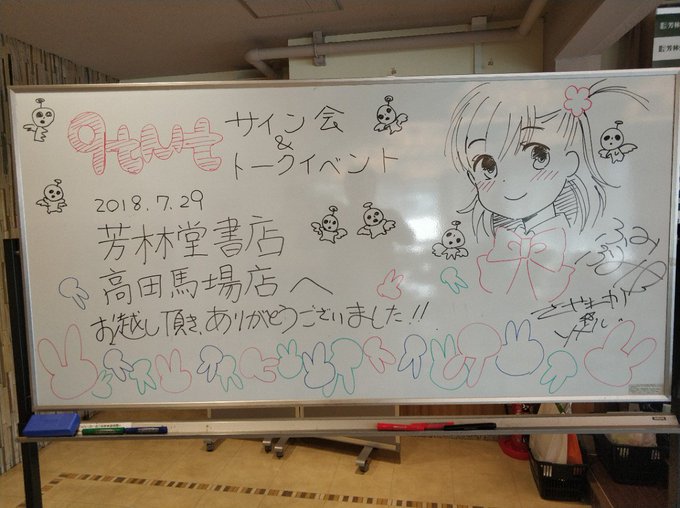 qtμt サイン会
&
トークイベント
2018.7.29
芳林堂書店
高田馬場店へ
お越し頂き、ありがとうございました!!